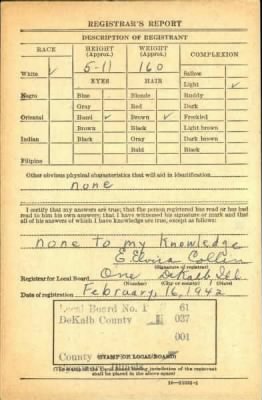 REGISTRAR'S REPORT
DESCRIPTION OF REGISTRANT
RACE HEIGHT (Approx.) WEIGHT (Approx.) COMPLEXION
White ✓ 5-11 160 Sallow
EYES HAIR Light ✓
Negro Blue Blonde Ruddy
Gray Red Dark
Oriental Hazel ✓ Brown ✓ Freckled
Brown Black Light brown
Indian Black Gray Dark brown
Bald Black
Filipino
Other obvious physical characteristics that will aid in identification
none
I certify that my answers are true; that the person registered has read or has had
read to him his own answers; that I have witnessed his signature or mark and that
all of his answers of which I have knowledge are true, except as follows:
none to my Knowledge
E. Elvira Collin
(Signature of registrar)
Registrar for Local Board One DeKalb Ill.
(Number) (City or county) (State)
Date of registration February, 16, 1942
Local Board No. 1 61
DeKalb County 037
001
County
(STAMP OF LOCAL BOARD)
(The stamp of the Local Board having jurisdiction of the registrant
shall be placed in the above space)